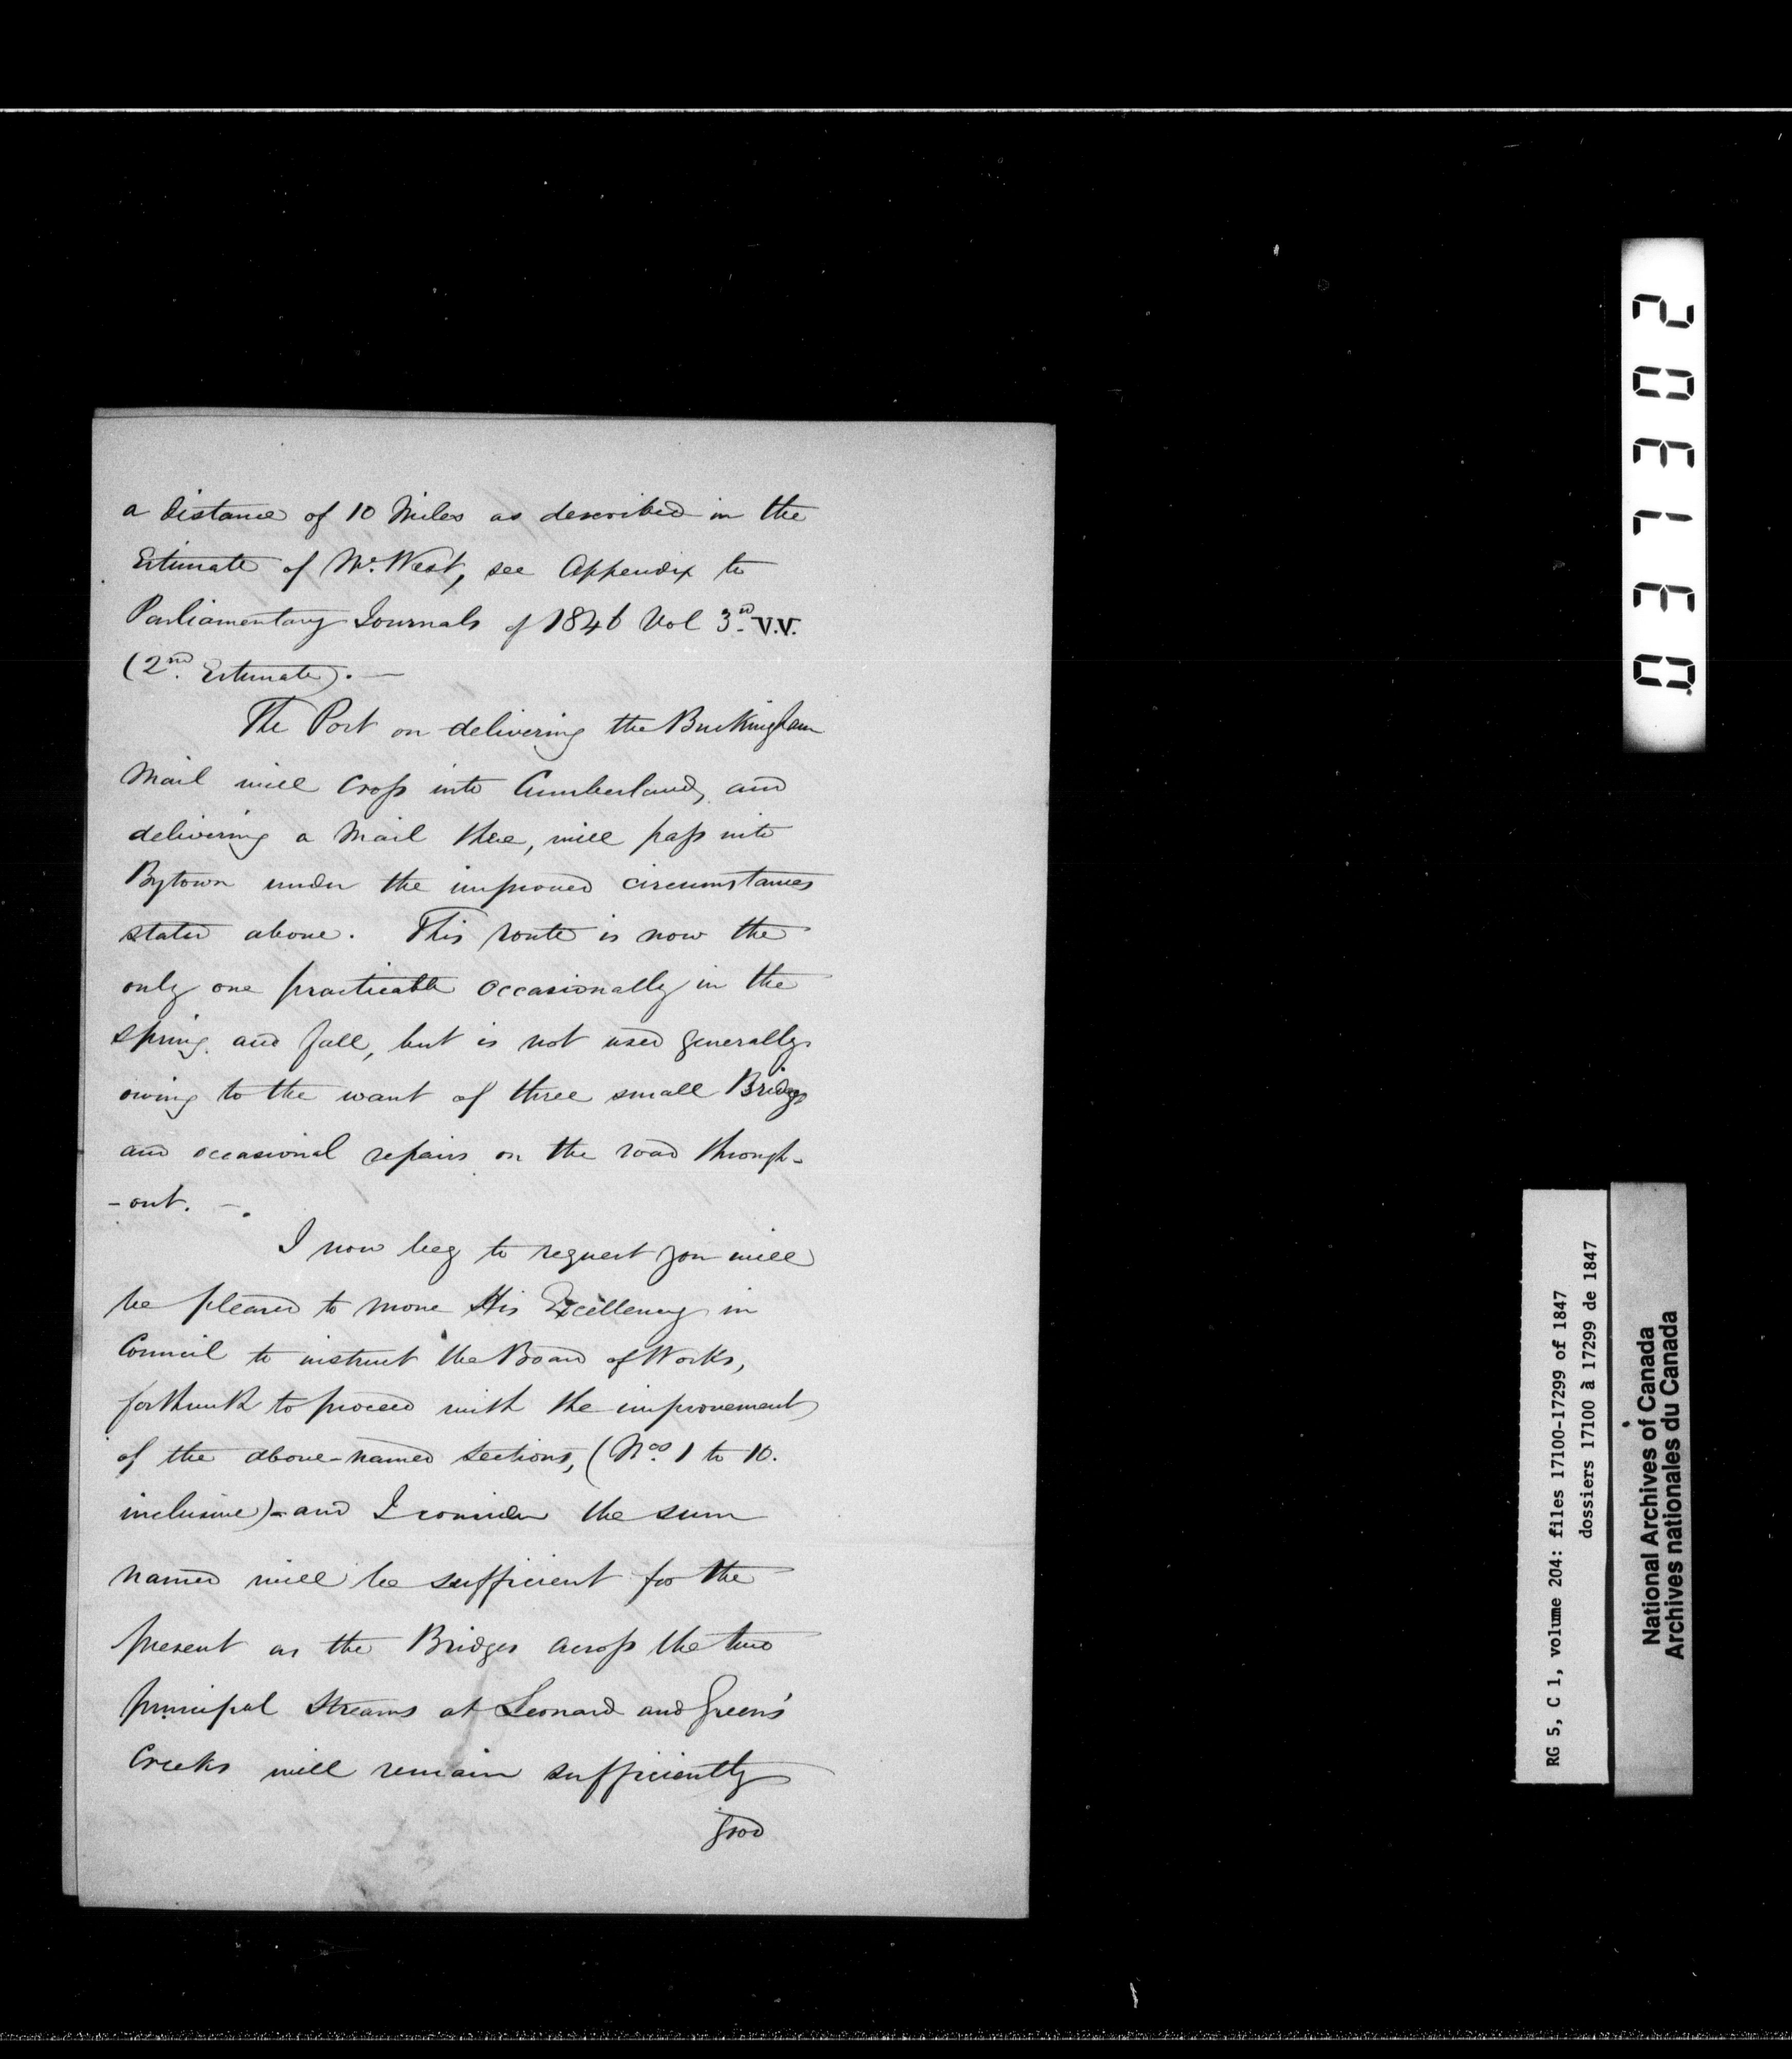 a distance of 10 Miles as described in the
Estimate of Mr. West, see Appendix to
Parliamentary Journals of 1846 Vol 3rd. V.V.
(2nd. Estimate). —
The Post on delivering the Buckingham
Mail will cross into Cumberland, and
delivering a Mail there, will pass into
Bytown under the improved circumstances
stated above. This route is now the
only one practicable occasionally in the
spring and fall, but is not used generally
owing to the want of three small Bridges
and occasional repairs on the road through-
-out. —.
I now beg to request you will
be pleased to move His Excellency in
Council to instruct the Board of Works,
forthwith to proceed with the improvement
of the above-named sections, (Nos. 1 to 10.
inclusive) - and I consider the sum
named will be sufficient for the
present as the Bridges across the two
principal Streams at Leonard and Green's
Creeks will remain sufficiently
good
203730
RG 5, C 1, volume 204: files 17100-17299 of 1847
dossiers 17100 à 17299 de 1847
National Archives of Canada
Archives nationales du Canada